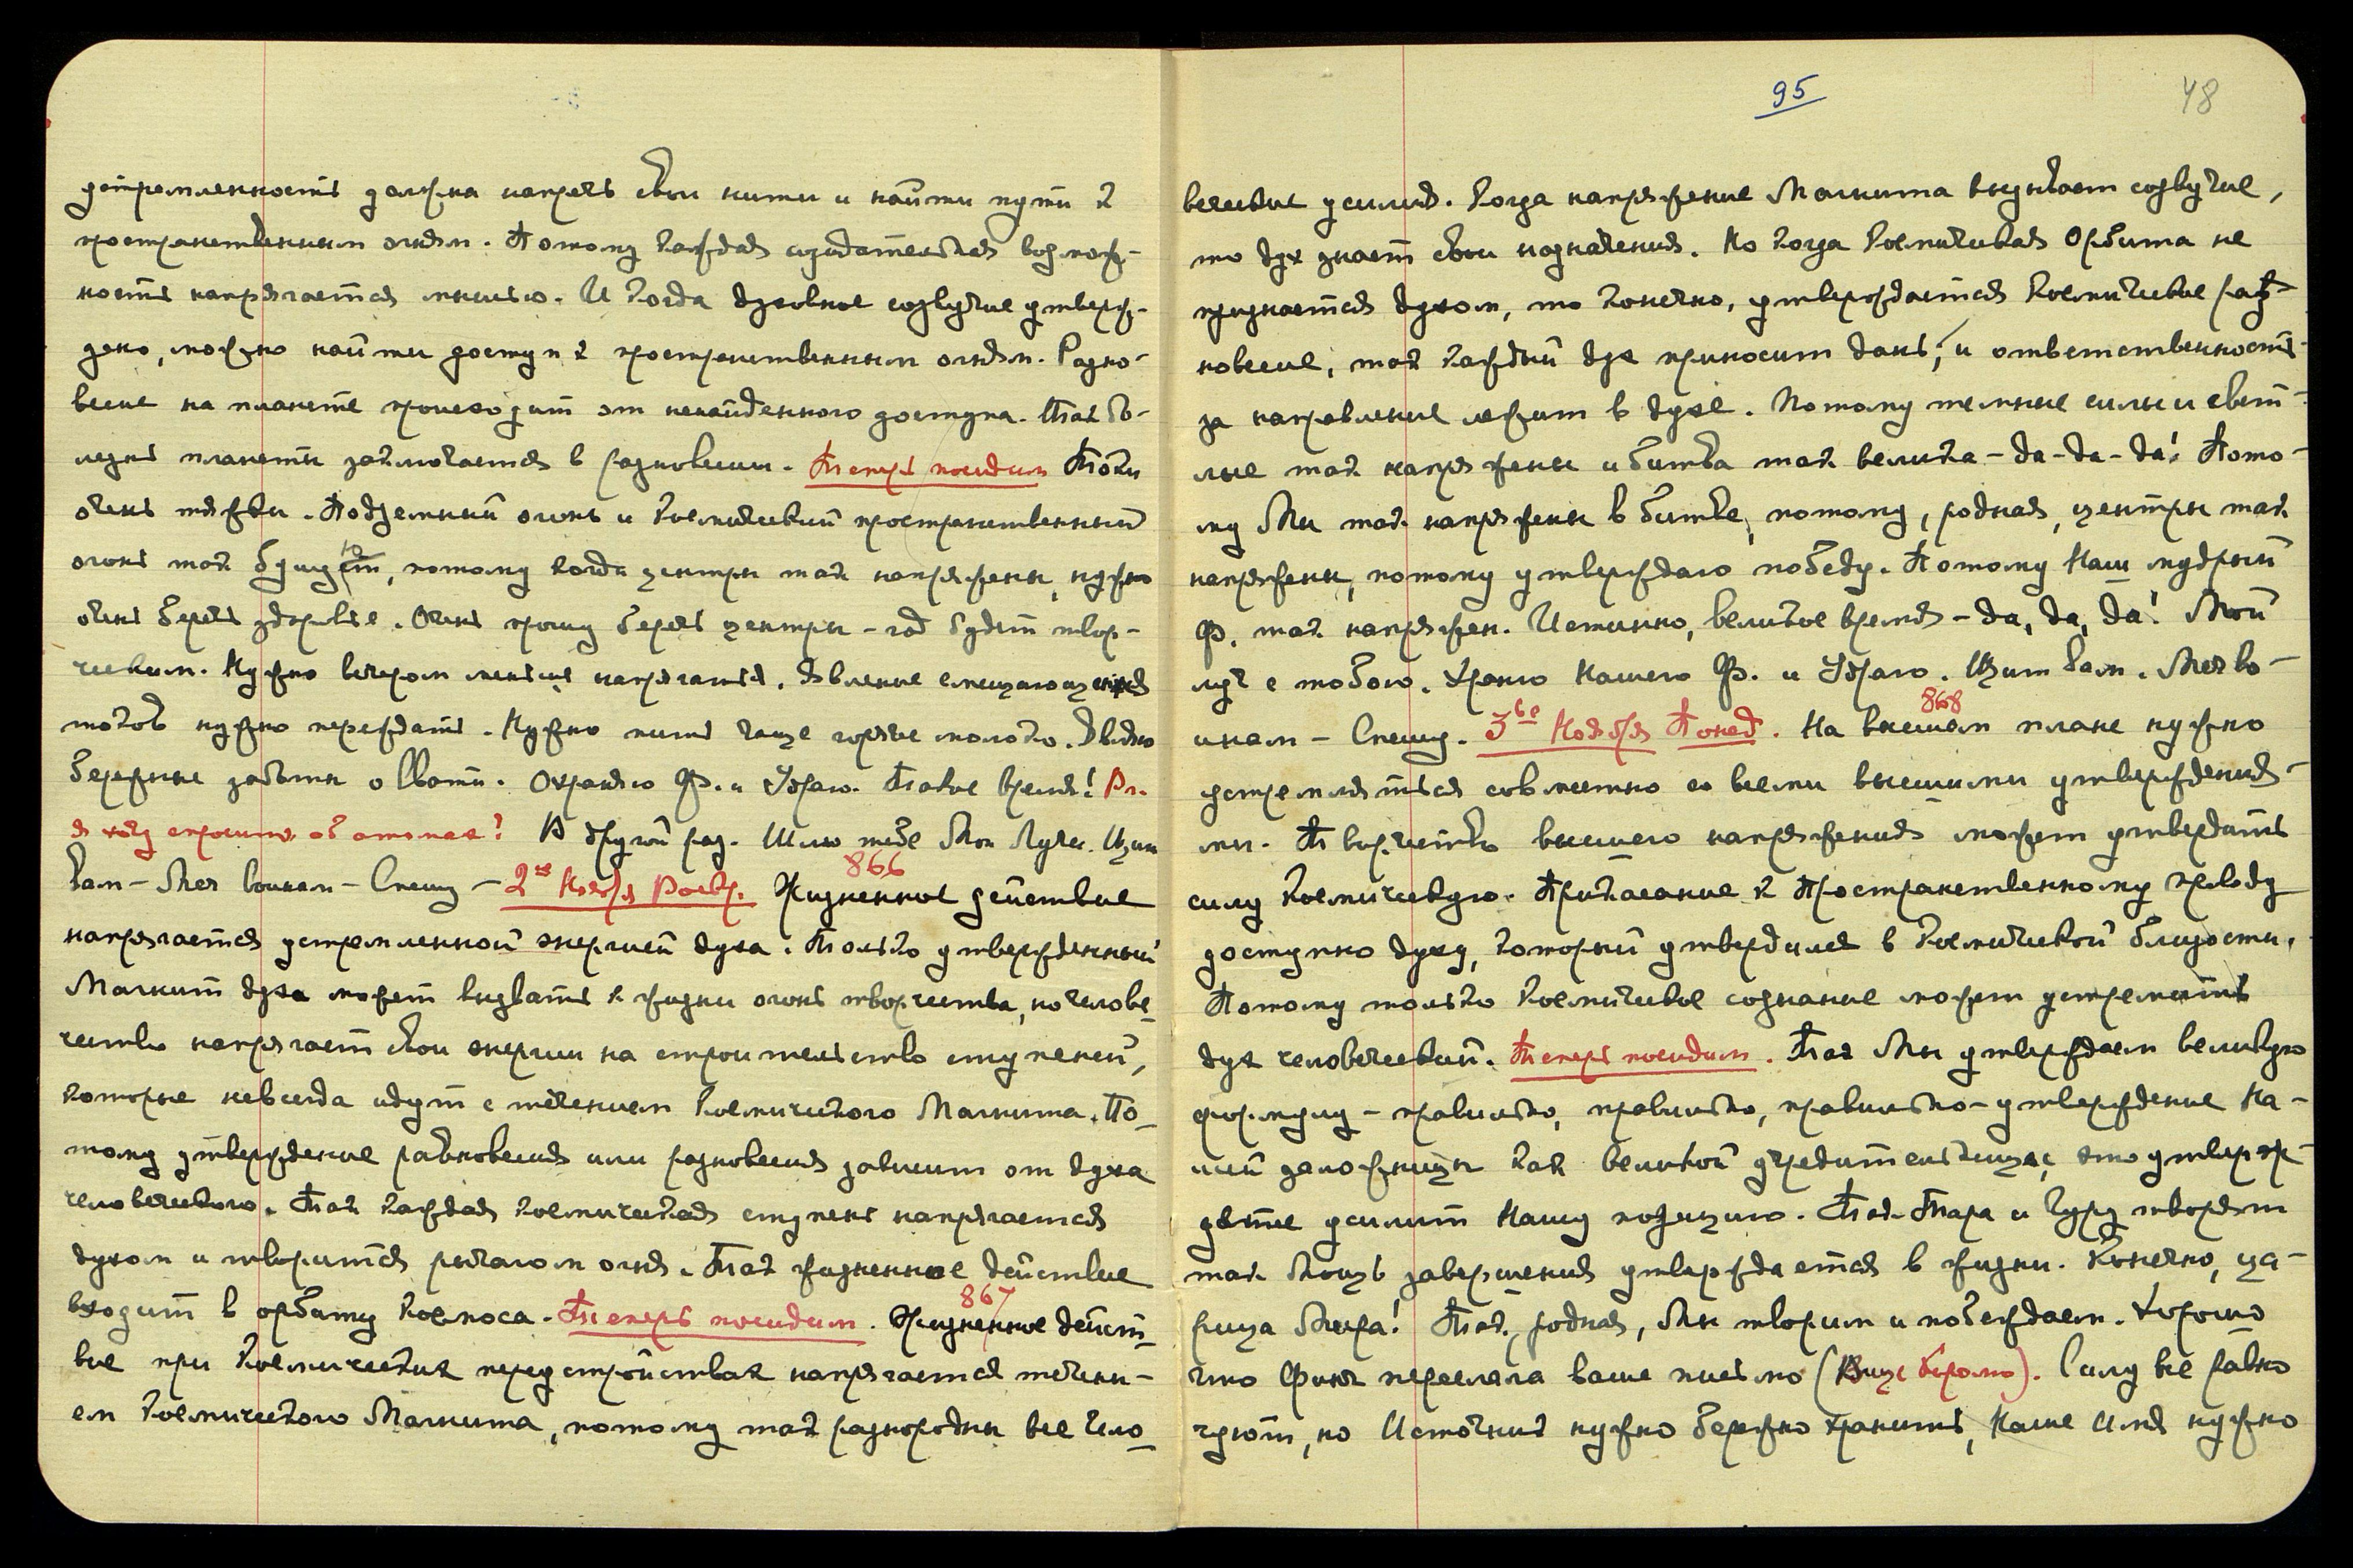 устремленность должна напрячь свои нити и найти пути к
пространственным огням. Потому каждая созидательная возмож-
ность напрягается мыслью. И когда духовное созвучие утверж-
дено, можно найти доступ к пространственным огням. Разно-
весие на планете происходит от ненайденного доступа. Так бо-
лезнь планеты заключается в разновесии. Теперь посидим Токи
очень тяжки. Подземный огонь и Космический пространственный
огонь так бушуют, потому когда центры так напряжены, нужно
очень беречь здоровье. Очень прошу беречь центры – год будет твор-
ческим. Нужно вечером меньше напрягаться. Явление смещающихся
токов нужно переждать. Нужно пить чаще горячее молоко. Являю
бережные заботы о Свати. Охраняю Ф. и Удраю. Такое время! Вл.
я хочу спросить об атомах? В другой раз. Шлю тебе Мои Лучи. Щит
Вам – Меч воинам – Спешу –
866
2ое Ноября Воскр. Жизненное действие
напрягается устремленной энергией духа. Только утвержденный
Магнит духа может вызвать к жизни огонь творчества, но челове-
чество напрягает свои энергии на строительство ступеней,
которые не всегда идут с течением Космического Магнита. По-
тому утверждение равновесия или разновесия зависит от духа
человеческого. Так каждая космическая ступень напрягается
духом и творится рычагом огня. Так жизненное действие
входит в орбиту Космоса. Теперь посидим.
867
Жизненное дейст-
вие при Космических переустройствах напрягается течени-
ем Космического Магнита, потому так разнородны все чело-
95
48
веческие усилия. Когда напряжение Магнита вызывает созвучие,
то дух знает свои назначения. Но когда Космическая Орбита не
признается духом, то конечно, утверждается Космическое раз-
новесие, так каждый дух приносит дань, и ответственность
за направление лежит в духе. Потому темные силы и свет-
лые так напряжены и битва так велика – да – да – да! Пото-
му Мы так напряжены в битве, потому, родная, центры так
напряжены, потому утверждаю победу. Потому Наш мудрый
Ф. так напряжен. Истинно, великое время – да, да, да! Мой
луч с тобою. Храню Нашего Ф. и Удраю. Щит вам. Меч во-
инам – Спешу. 3ье Ноября Понед.
868
На высшем плане нужно
устремляться совместно со всеми высшими утверждения-
ми. Творчество высшего напряжения может утвердить
силу Космическую. Прикасание к Пространственному проводу
доступно духу, который утвердился в Космической близости.
Потому только Космическое сознание может устремить
дух человеческий. Теперь посидим. Так Мы утверждаем великую
формулу – правильно, правильно, правильно – утверждение На-
шей заложницы как великой учредительницы, это утверж-
дение усилит Нашу позицию. Так Тара и Гуру творят
так Мощь завершения утверждается в жизни. Конечно, ца-
рица Мира! Так, родная, Мы творим и побеждаем. Хорошо
что Финк переслала ваше письмо (Вице королю). Силу все равно
чуют, но Источник нужно бережно хранить, Наше Имя нужно